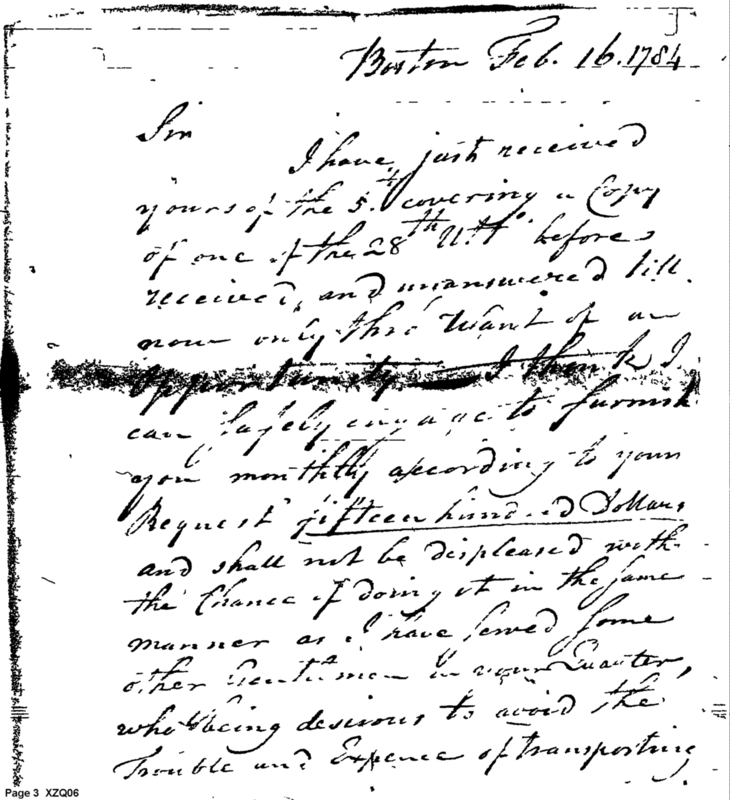 Boston Feb. 16. 1784
Sir
I have just received
yours of the 5.th covering a Copy
of one of the 28th Ult.o before
received, and unanswered till
now only thro' Want of an
Opportunity I think I
can safely engage to furnish
you monthly according to your
Request fifteen hundred Dollars
and shall not be displeased with
the Chance of doing it in the same
manner as I have served some
other Gentlemen in your Quarter,
who being desirous to avoid the
Trouble and Expence of transporting
Page 3 XZQ06